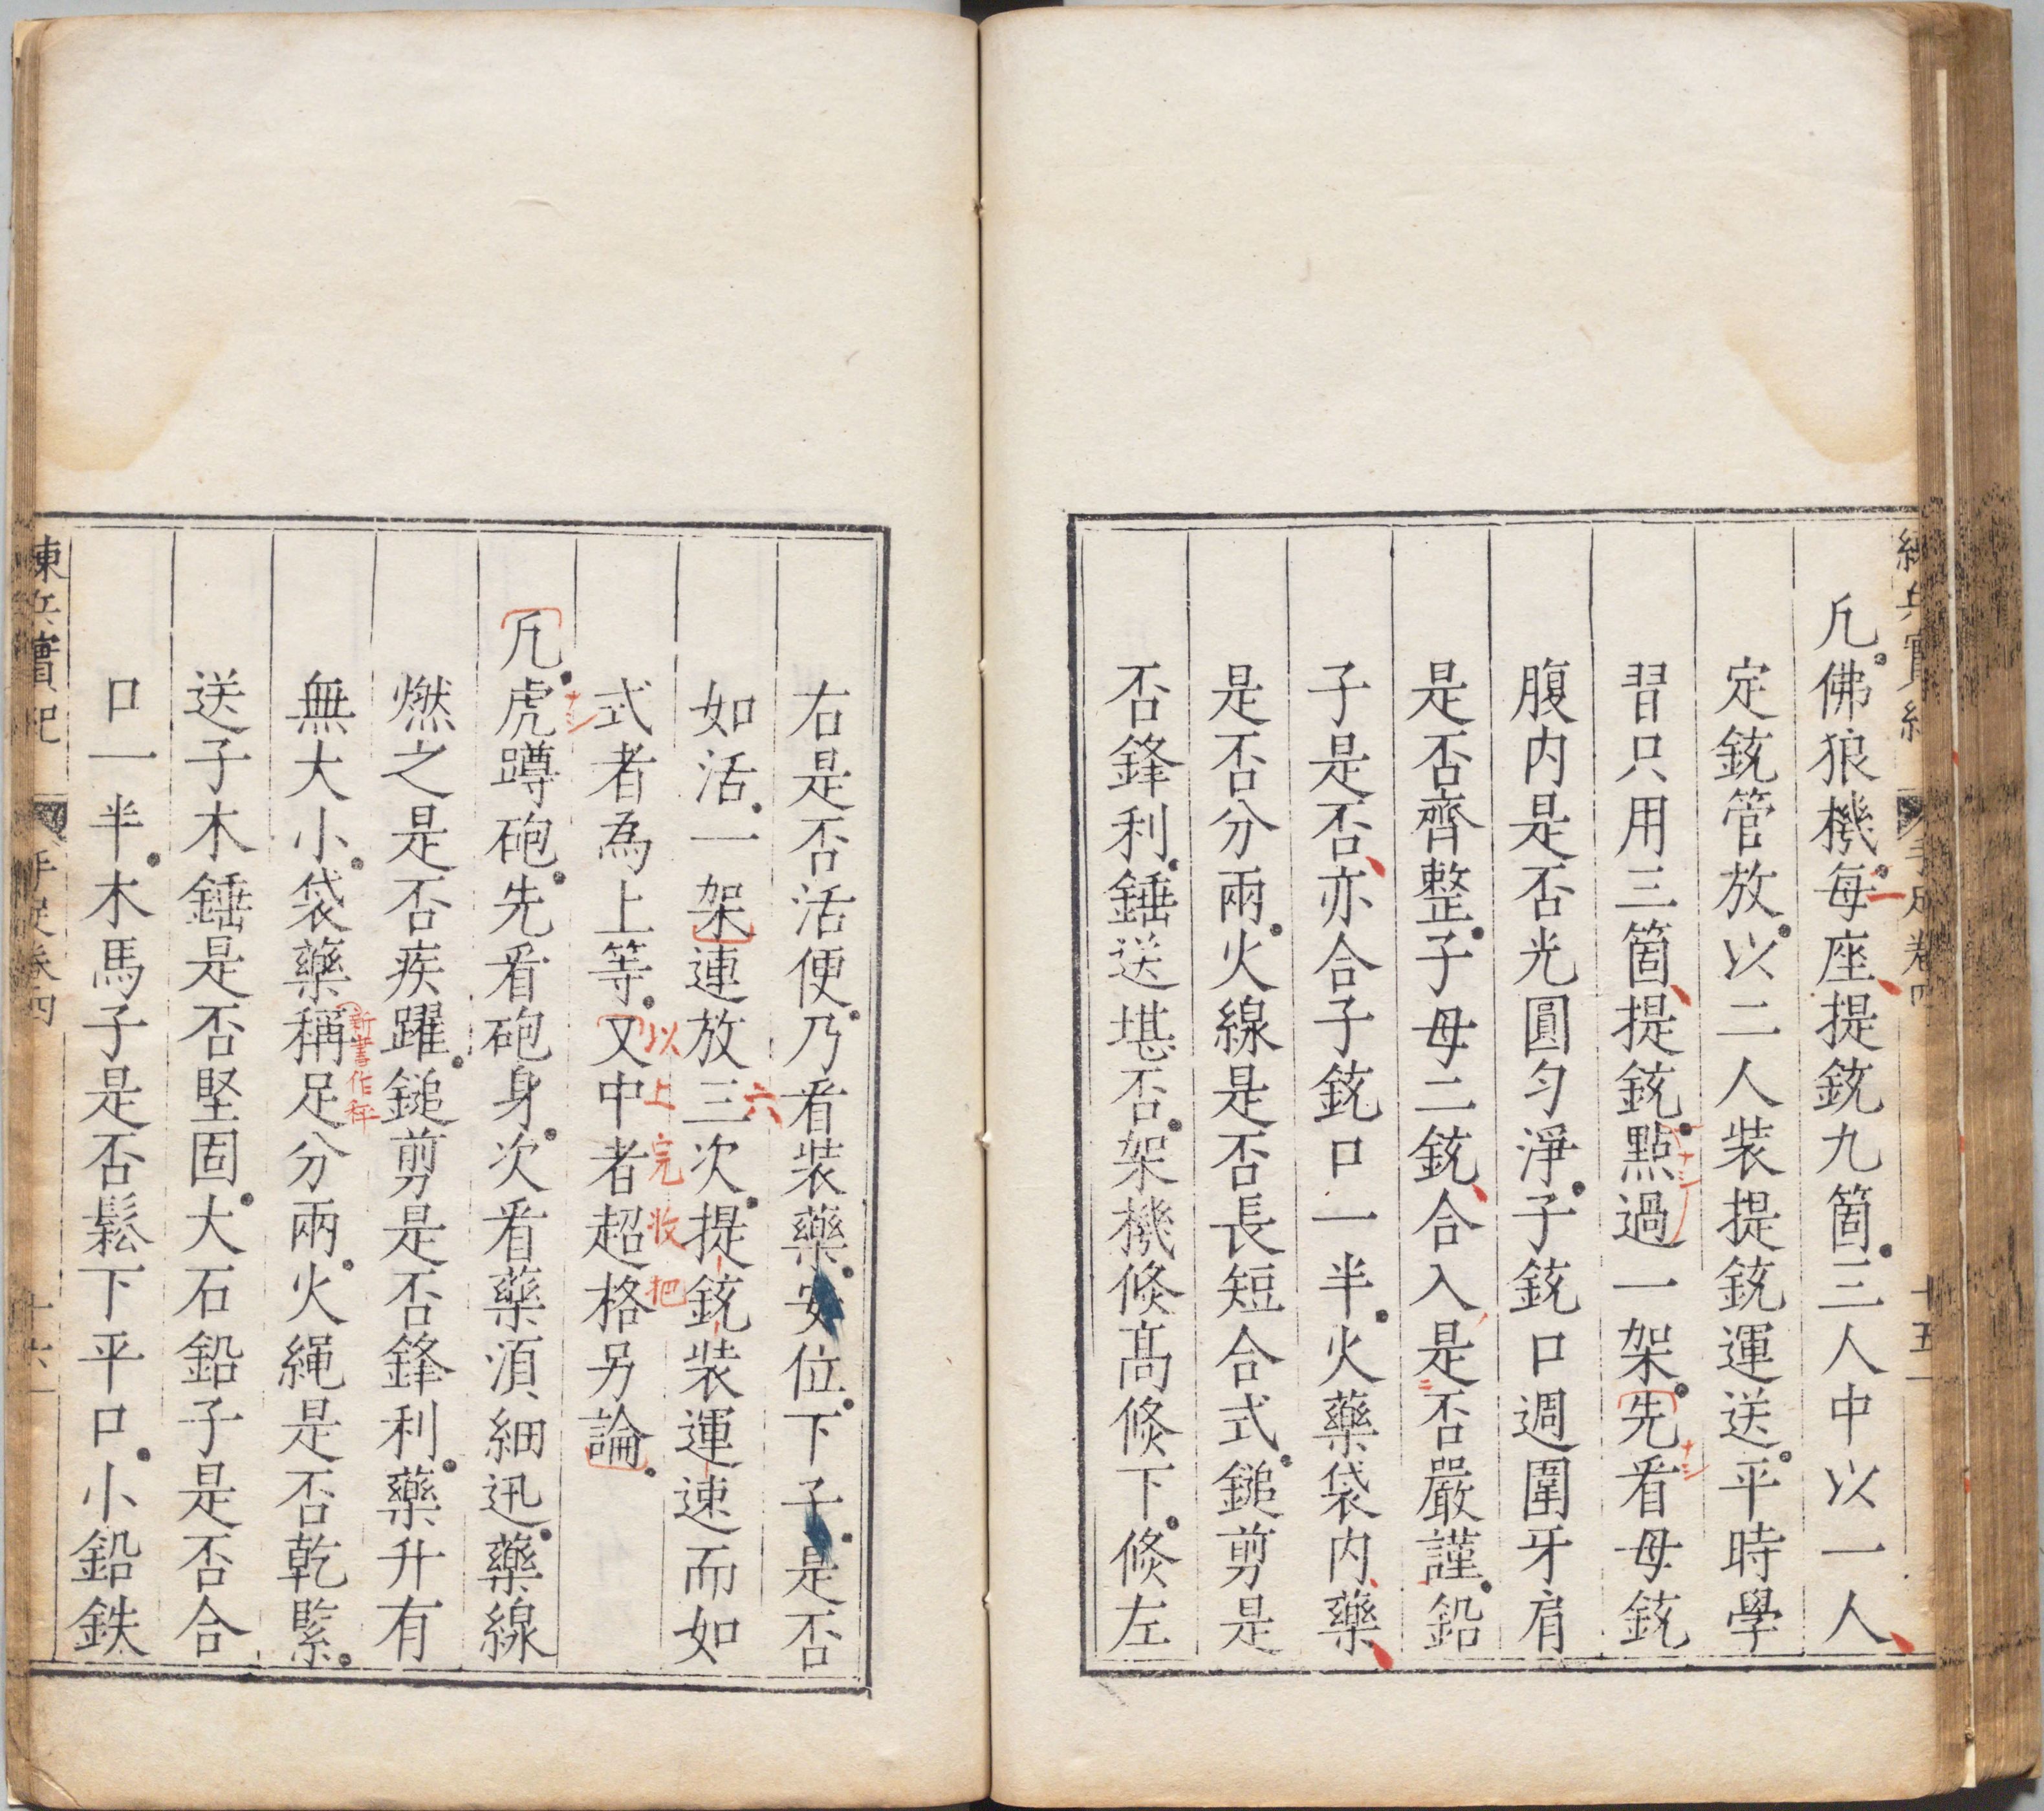 凢佛狼機每座提銃九箇三人中以一人
定銃管放以二人裝提銃運送平時學
習只用三箇提銃點過一架先看母銃
腹内是否光圓勻淨子銃口週圍牙肩
是否齊整子母二銃合入是否嚴謹鉛
子是否亦合子銃口一半火藥袋内藥
是否分兩火線是否長短合式鎚剪是
否鋒利錘送堪否架機倐髙倐下倐左
右是否活便乃看裝藥安位下子是否
如活一架連放三次提銃裝運速而如
六
式者為上等又中者超格另論
以上完收把
凢虎蹲砲先看砲身次看藥湏細迅藥線
ナシ
燃之是否疾躍鎚剪是否鋒利藥升有
無大小袋藥稱足分兩火繩是否乾緊
新書作秤
送子木錘是否堅固大石鉛子是否合
口一半木馬子是否鬆下平口小鉛鉄
練兵實紀 手足卷四 十六